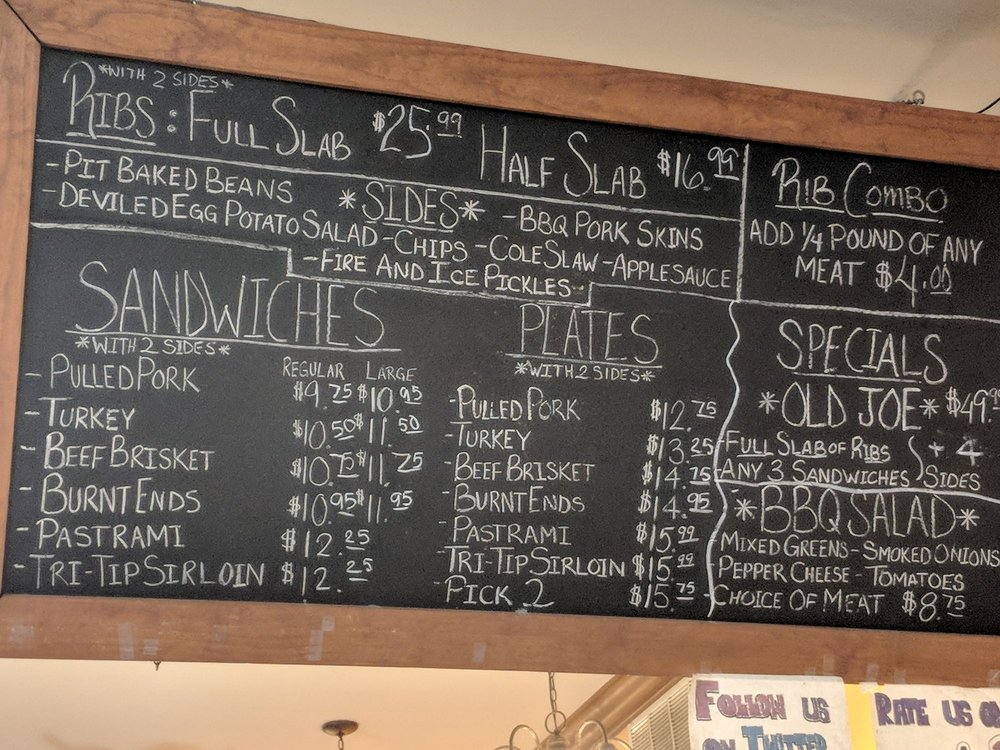 *WITH 2 SIDES*
RIBS: FULL SLAB $25.99 HALF SLAB $16.99
- PIT BAKED BEANS *SIDES* - BBQ PORK SKINS
- DEVILED EGG POTATO SALAD - CHIPS - COLE SLAW - APPLESAUCE
- FIRE AND ICE PICKLES -
RIB COMBO
ADD 1/4 POUND OF ANY
MEAT $4.00
SANDWICHES
*WITH 2 SIDES*
REGULAR LARGE
- PULLED PORK $9.75 $10.95
- TURKEY $10.50 $11.50
- BEEF BRISKET $10.75 $11.75
- BURNT ENDS $10.95 $11.95
- PASTRAMI $12.25
- TRI-TIP SIRLOIN $12.25
PLATES
*WITH 2 SIDES*
- PULLED PORK $12.75
- TURKEY $13.25
- BEEF BRISKET $14.75
- BURNT ENDS $14.95
- PASTRAMI $15.99
- TRI-TIP SIRLOIN $15.99
PICK 2 $15.75
SPECIALS
*OLD JOE* $49.
- FULL SLAB OF RIBS + 4
- ANY 3 SANDWICHES SIDES
*BBQ SALAD*
- MIXED GREENS - SMOKED ONIONS
PEPPER CHEESE - TOMATOES
- CHOICE OF MEAT $8.75
FOLLOW US
ON TWITTER
RATE US